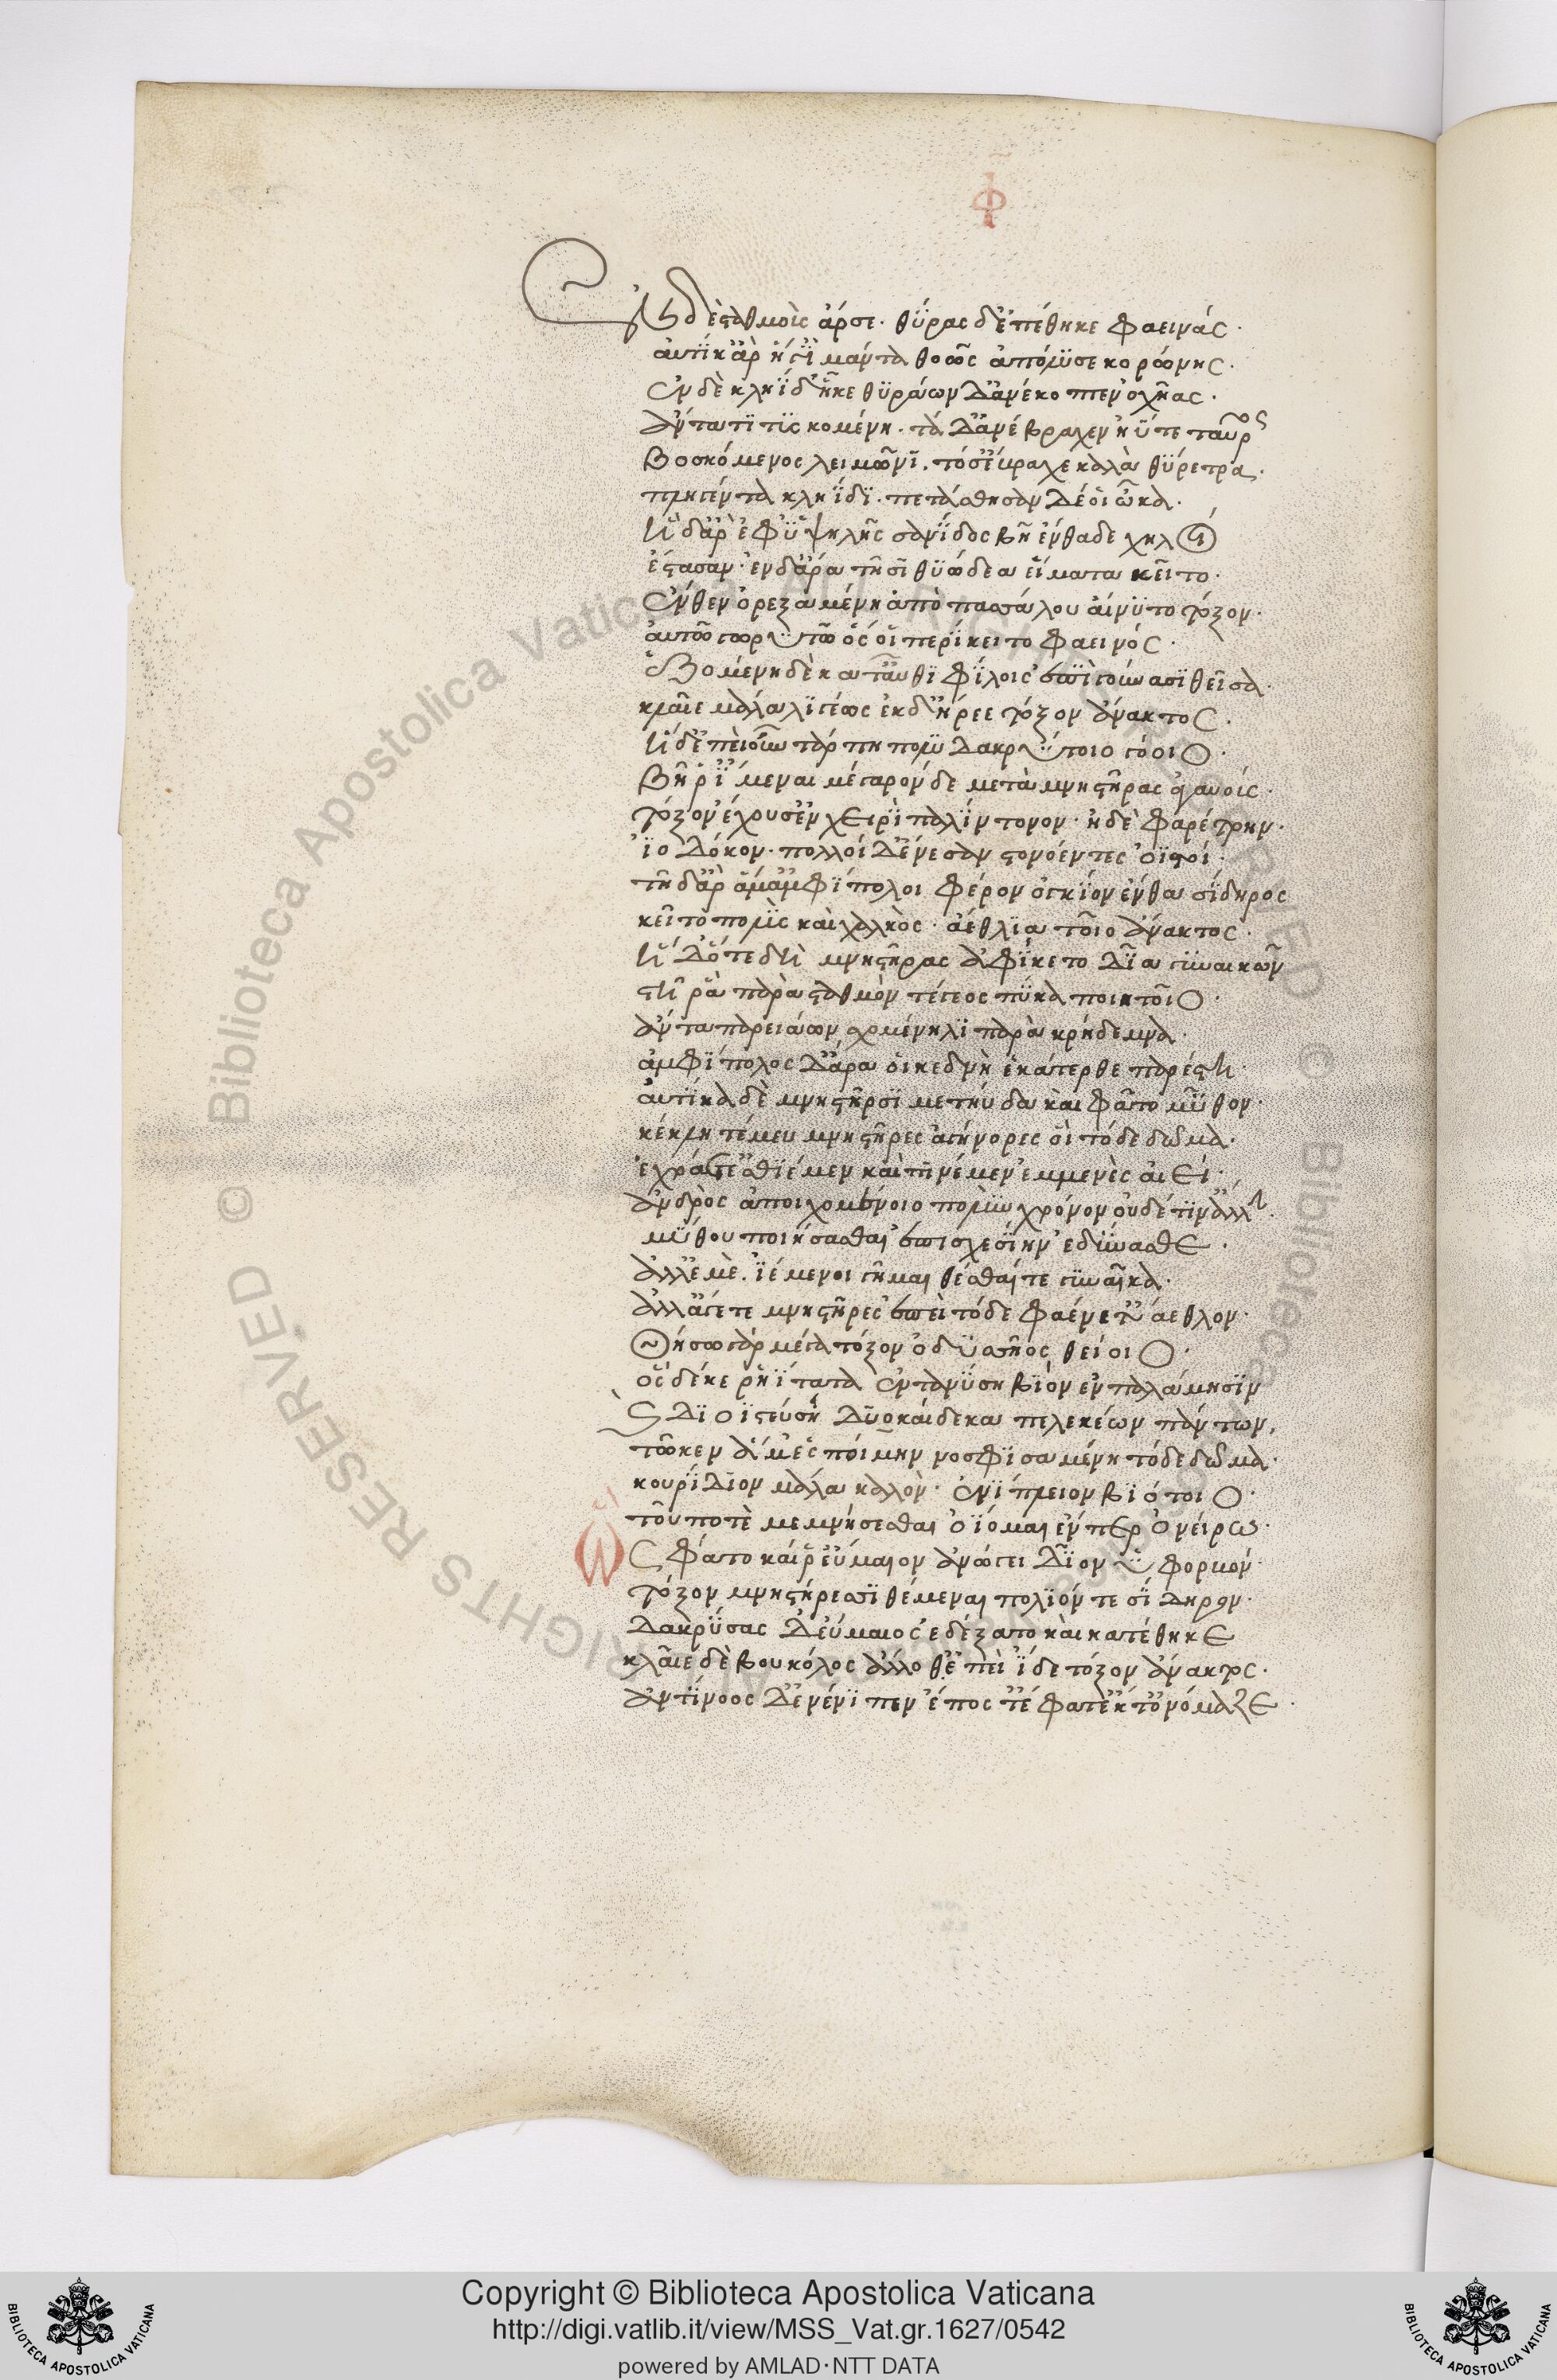 φ
Ἐν δὲ σταθμοὶς ἄρσε· θύρας δ' ἐπέθηκε φαεινάς·
αὐτίκ' ἂρ ἥγ' ἱμάντα θοῶς ἀπόλυσε κορώνης·
ἐν δὲ κληΐδ' ἧκε θυράων δ' ἀνέκοπτεν ὀχῆας·
ἄντα τιτυσκομένη· τὰ δ' ἀνέβραχεν ἠΰτε ταῦρος
βοσκόμενος λειμῶνι· τόσ' ἔβραχε καλὰ θύρετρα·
πληγέντα κληΐδι· πετάσθησαν δέ οἱ ὦκα·
ἡ δ' ἂρ ἐφ' ὑψηλῆς σανίδος βῆ ἔνθα δε χηλοί
ἕστασαν· ἐν δ' ἄρα τῆσι θυώδεα εἵματα κεῖτο·
ἔνθεν ὀρεξαμένη ἀπὸ πασσάλου αἴνυτο τόξον·
αὐτῶ γωρυτῶ ὅς οἱ περίκειτο φαεινός·
ἑζομένη δὲ κατ' αῦθι φίλοις ἐπὶ γούνασι θεῖσα·
κλαῖε μάλα λιγέως ἐκ δ' ἥρεε τόξον ἄνακτος·
ἡ δ' ἐπεὶ οὖν τάρπη πολυδακρύτοιο γόοιο·
βῆ ῥ' ἴμεναι μέγαρον δε μετὰ μνηστῆρας ἀγαυούς·
τόξον ἔχουσ' ἐν χειρὶ παλίντονον· ἠδὲ φαρέτρην·
ἰοδόκον· πολλοί δ' ἔνεσαν στονόεντες ὀϊστοί·
τῆ δ' ἂρ ἅμ' ἀμφίπολοι φέρον ὄγκιον ἔνθα σίδηρος
κεῖτο πολὺς καὶ χαλκὸς· ἀέθλια τοῖο ἄνακτος·
ἡ δ' ὅτε δὴ μνηστῆρας ἀφίκετο δῖα γυναικῶν
στῆ ῥα παρὰ σταθμὸν τέγεος πύκα ποιητοῖο·
ἄντα παρειάων σχομένη λιπαρὰ κρήδεμνα·
ἀμφίπολος δ' ἄρα οἱ κεδνὴ ἑκάτερθε παρέστη·
αὐτίκα δὲ μνηστῆρσι μετηύδα καὶ φάτο μῦθον·
κέκλυτέ μευ μνηστῆρες ἀγήνορες οἳ τόδε δῶμα·
ἐχράετ' ἐσθιέμεν καὶ πινέμεν ἐμμενὲς αἰεί·
ἀνδρὸς ἀποιχομένοιο πολὺν χρόνον οὐδέ τιν' ἄλλην·
μύθου ποιήσασθαι ἐπισχεσίην ἐδύνασθε·
ἀλλ' ἐμὲ· ἱέμενοι γῆμαι θέσθαι τε γυναῖκα·
ἀλλ' ἄγετε μνηστῆρες ἐπεὶ τόδε φαίνετ' ἄεθλον·
θήσω γὰρ μέγα τόξον ὀδυσσῆος θείοιο·
ὃς δέ κε ῥηΐτατα ἐντανύση βιὸν ἐν παλάμησιν
καὶ διοϊστεύση δυοκαίδεκα πελεκέων πάντων,
τῶ κεν ἅμ' ἐσποίμην νοσφισαμένη τόδε δῶμα·
κουρίδιον μάλα καλὸν· ἐνίπλειον βιότοιο·
τοῦ ποτὲ μεμνήσεσθαι ὀΐομαι ἔν περ ὀνείρω·
Ὣς φάτο καί ῥ' εὔμαιον ἀνώγει δῖον ὑφορβόν·
τόξον μνηστήρεσσι θέμεναι πολιόν τε σίδηρον·
δακρύσας δ' εὔμαιος ἐδέξατο καὶ κατέθηκε
κλαῖε δὲ βουκόλος ἄλλοθ' ἐπεὶ ἴδε τόξον ἄνακτος·
ἀντίνοος δ' ἐνένιπεν ἔπος τ' ἔφατ' ἔκ τ' ὀνόμαζε·
© Biblioteca Apostolica Vaticana ALL RIGHTS RESERVED © Biblioteca Apostolica Vaticana ALL RIGHTS RESERVED
Copyright © Biblioteca Apostolica Vaticana
http://digi.vatlib.it/view/MSS_Vat.gr.1627/0542
powered by AMLAD·NTT DATA
BIBLIOTECA APOSTOLICA VATICANA
BIBLIOTECA APOSTOLICA VATICANA